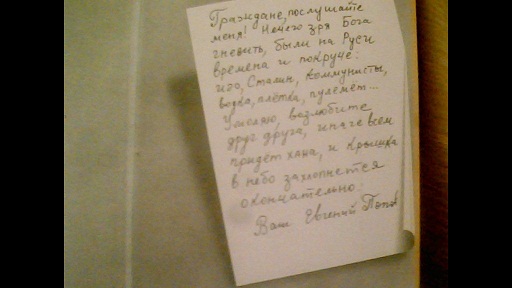 Граждане, послушайте
меня! Нечего зря Бога
гневить, были на Руси
времена и покруче:
иго, Сталин, коммунисты,
водка, плётка, пулемёт...
Умоляю, возлюбите
друг друга, иначе всем
придёт хана, и крышка
в небо захлопнется
окончательно.
Ваш Евгений Попов